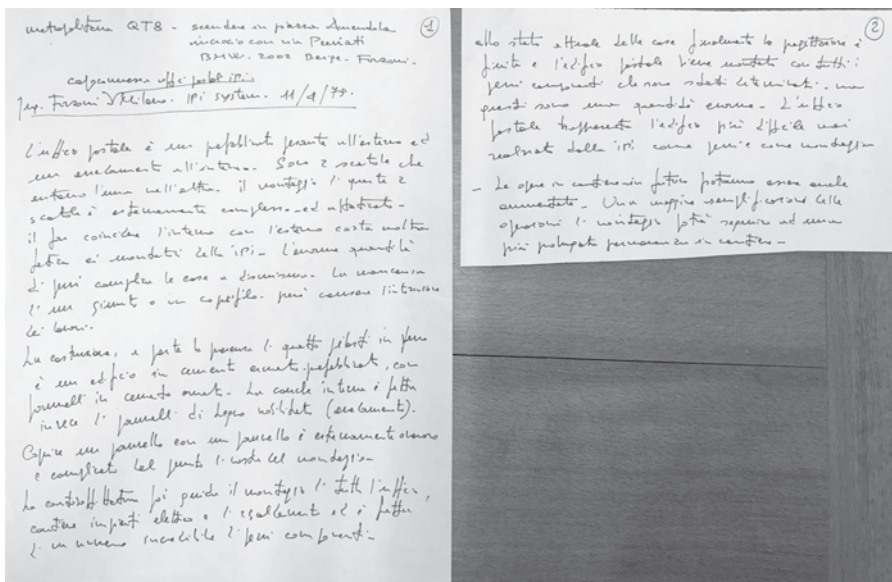 1
metropolitana QT8 - scendere in piazza Amendola
incrocio con via
BMW. 2002 Beige. Forzoni.
capannone uffici postali iPi
Ing. Forzoni Milano. iPi system. 11/9/79.
L'ufficio postale è un prefabbricato pesante all'esterno ed
un arredamento all'interno. Sono 2 scatole che
entrano l'una nell'altra. il montaggio di queste 2
scatole è estremamente complesso ed
il far coincidere l'interno con l'esterno costa molta
fatica ai montatori della iPi. L'enorme quantità
di pezzi complica le cose a dismisura. La mancanza
di un giunto o un coprifilo può causare l'interruzione
dei lavori.
La costruzione, a parte la presenza di quattro pilastri in ferro
è un edificio in cemento armato prefabbricato, con
pannelli in cemento armato. La conche interna è fatta
invece di pannelli di legno nobilitato (arredamento).
Coprire un pannello con un pannello è estremamente oneroso
e complicato dal punto di vista del montaggio.
La controsoffittatura poi guida il montaggio di tutto l'ufficio,
contiene impianti elettrico e di riscaldamento ed è fatta
di un numero incredibile di pezzi componenti.
2
allo stato attuale delle cose finalmente la progettazione è
finita e l'edificio postale viene montato con tutti i
pezzi componenti che sono stati determinati. ma
questi sono una quantità enorme. L'ufficio
postale rappresenta l'edificio più difficile mai
realizzato dalla iPi come pezzi e come montaggio
- Le opere in cantiere in futuro potranno essere anche
aumentate. Una maggiore semplificazione delle
operazioni di montaggio potrà seguire ad una
più prolungata permanenza in cantiere.